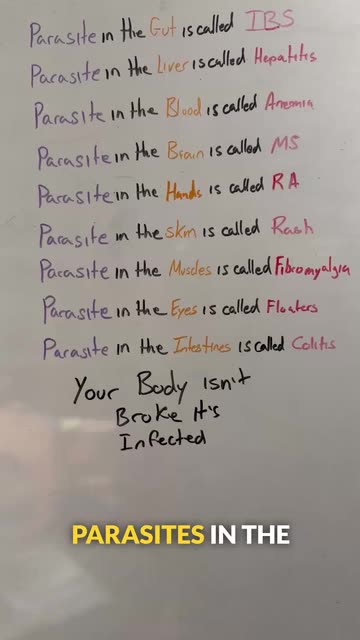 Parasite in the Gut is called IBS
Parasite in the Liver is called Hepatitis
Parasite in the Blood is called Anemia
Parasite in the Brain is called MS
Parasite in the Hands is called RA
Parasite in the skin is called Rash
Parasite in the Muscles is called Fibromyalgia
Parasite in the Eyes is called Floaters
Parasite in the Intestines is called Colitis
Your Body isn't
Broke It's
Infected
PARASITES IN THE